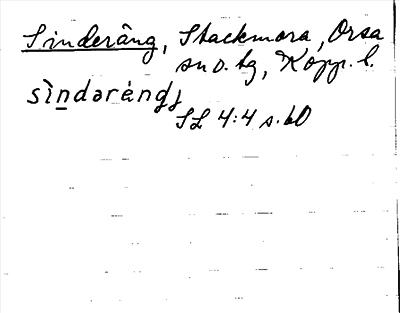 Sinderäng, Stackmora, Orsa
sn o. tg, Kopp. l.
sìndəréng
SL 4:4 s. 60